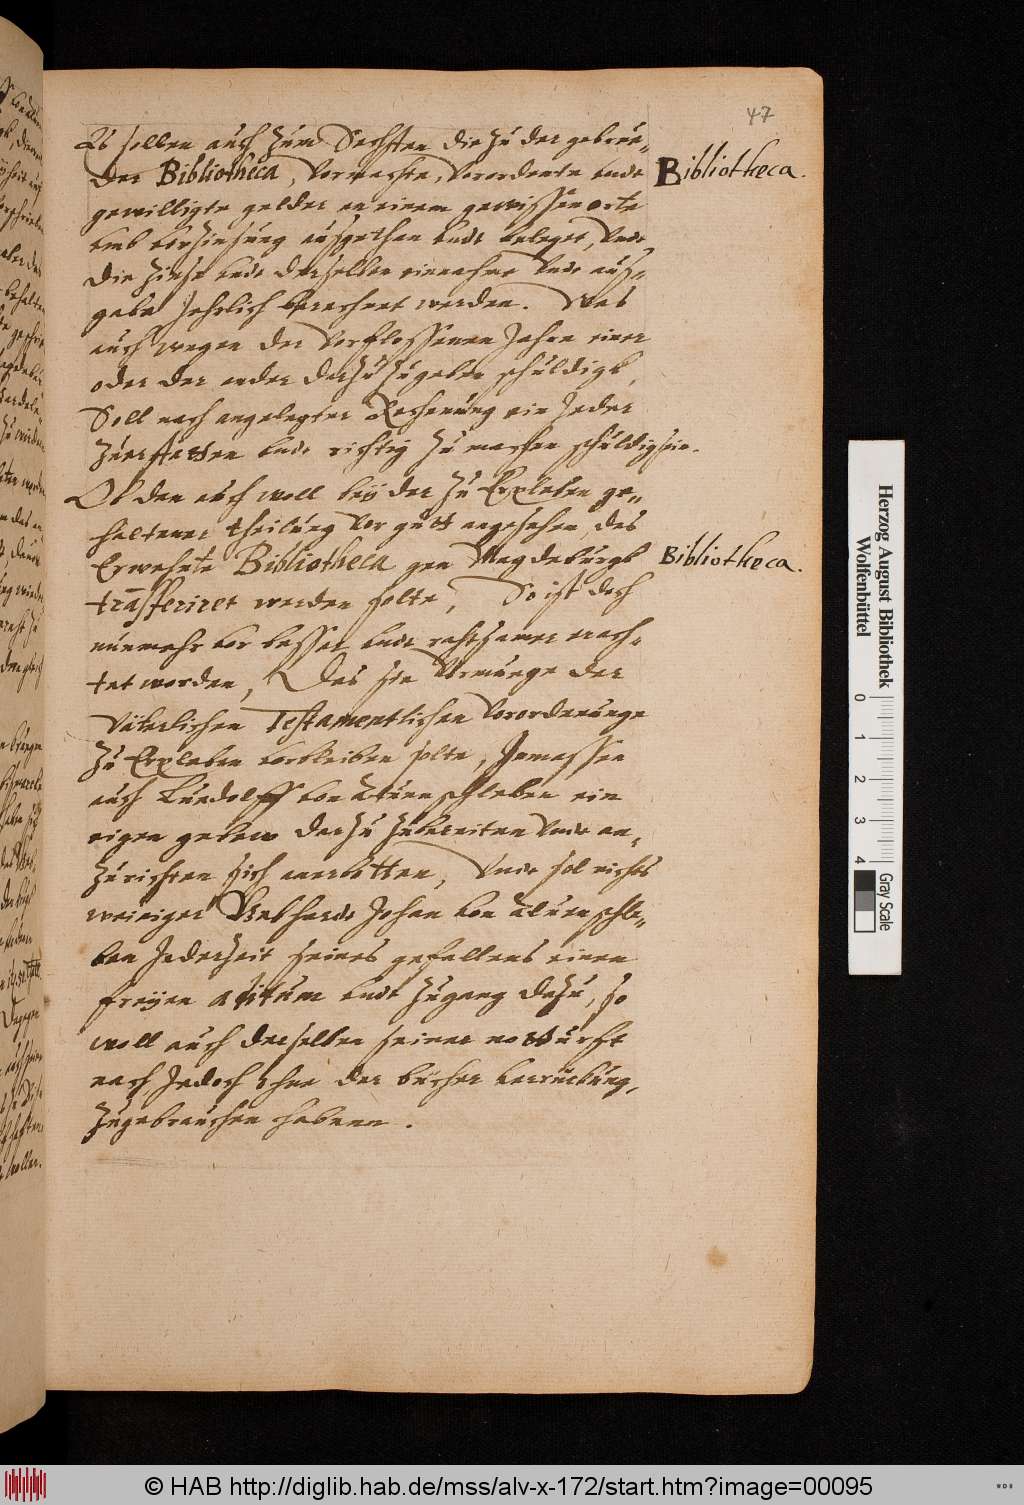 47
Es sollen auch zum Sechsten die zu der gebrue-
der Bibliotheca, vermachte, verordente unde
Bibliotheca.
gewilligte gelder an einem gewissen orte
umb vorzinsung ausgethan unde beleget, unde
die zinse unde derselben einnahme unde aus-
gabe Jehrlich berechnet werden. Was
auch wegen der verflossenen Jahre einer
oder der ander darzu zugeben schuldigk,
Soll nach angelegter Rechnung ein Jeder
zuerstatten unde richtig zu machen schuldig sein.
Ob den auch woll bey der zu Erxleben ge-
haltener theilung vor gutt angesehen, das
Erwehnte Bibliotheca gen Magdeburgk
Bibliotheca.
transferiret werden solte, So ist doch
nunmehr vor besser unde rahtsamer erach-
tet worden, Das sie vermuege der
Väterlichen Testamentlichen verordenunge
zu Erxleben verbleiben solte, Inmassen
auch Luedolff von Aluenschleben ein
eigen gebew darzu zubereiten unde an-
zurichten sich anerbotten, unde sol nichts
weiniger Gebhardt Johan von Aluenschle-
ben Jederzeit seines gefallens einen
freyen aditum unde zugang dazu, so
woll auch derselben seiner notturfft
nach, Jedoch ohne der bücher verrückung,
zugebrauchen habenn.
Herzog August Bibliothek
Wolfenbüttel
0 1 2 3 4
Gray Scale
© HAB http://diglib.hab.de/mss/alv-x-172/start.htm?image=00095